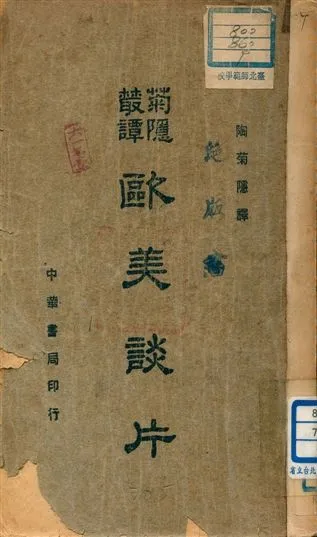 800
校學範師北臺
陶菊隱譯
絕版書
菊隱
叢譚
歐美談片
中華書局印行
8
7
省立台北